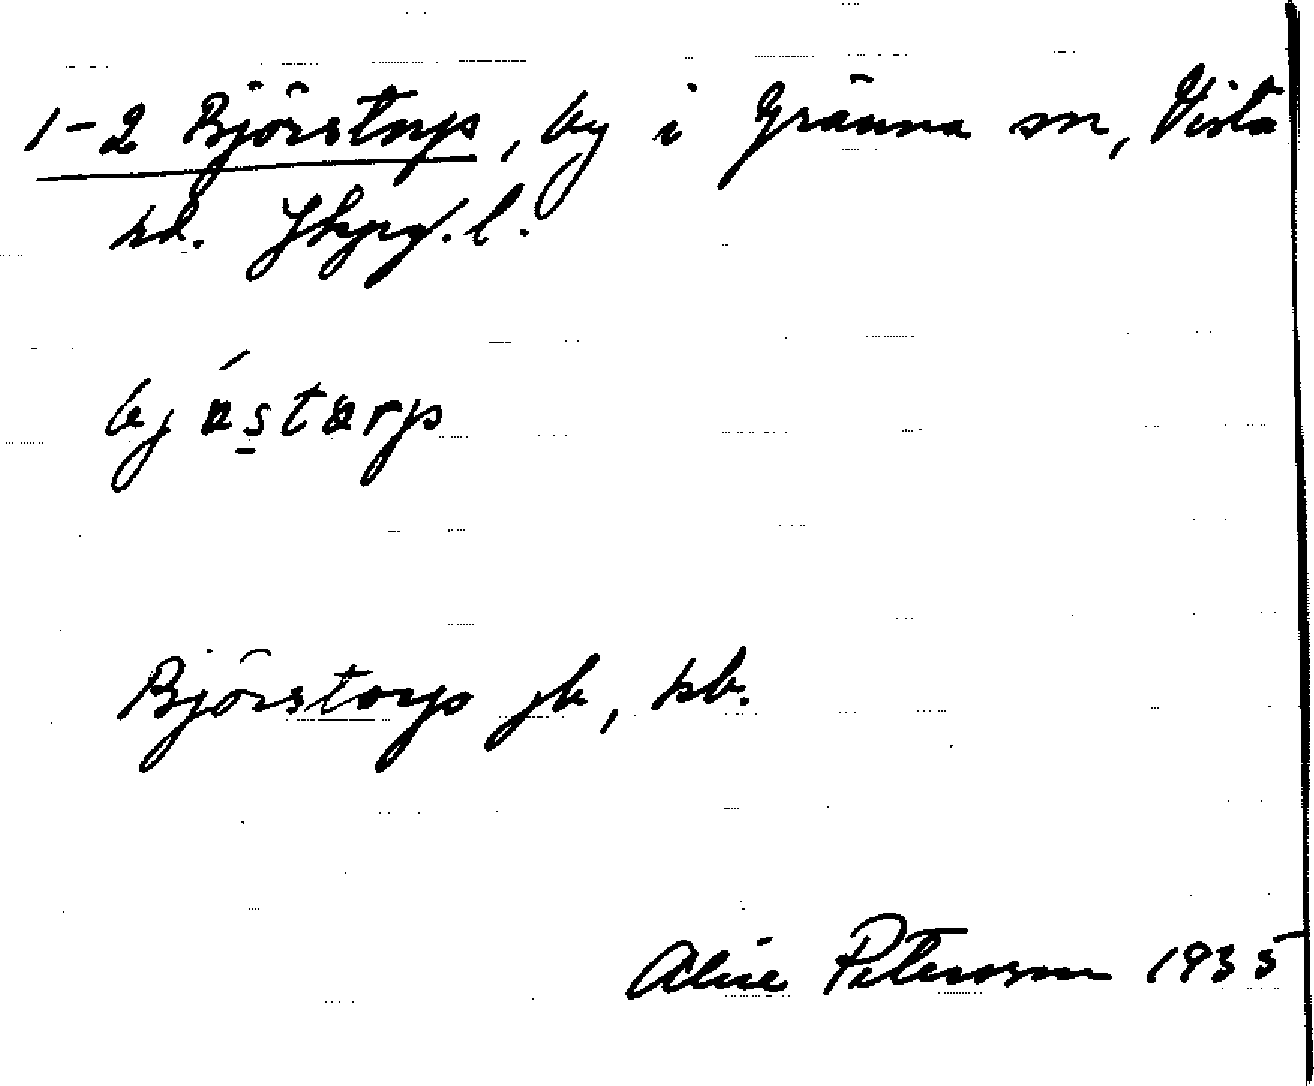 1-2 Björstorp, by i Gränna sn, Vista
hd. Jkpg. l.
bjǿstarp
Björstorp jb, kb.
Alice Petersson 1935